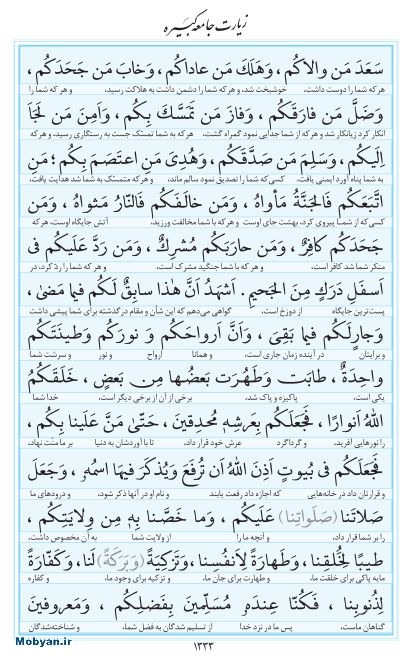 زیارت جامعه کبیره
سَعَدَ مَن والاکُم، وَهَلَکَ مَن عاداکُم، وَخابَ مَن جَحَدَکُم،
هر که شما را دوست داشت، خوشبخت شد، و هر که شما را دشمن داشت به هلاکت رسید، و هر که شما را
وَضَلَّ مَن فارَقَکُم، وَفازَ مَن تَمَسَّکَ بِکُم، وَاَمِنَ مَن لَجَاَ
انکار کرد زیانکار شد و هر که از شما جدایی نمود گمراه گشت، هر که به شما تمسک جست به رستگاری رسید، و هر که
اِلَیکُم، وَسَلِمَ مَن صَدَّقَکُم، وَهُدِیَ مَنِ اعتَصَمَ بِکُم؛ مَنِ
به شما پناه آورد ایمنی یافت، کسی که شما را تصدیق نمود سالم ماند، و هر که متمسک به شما شد هدایت یافت،
اتَّبَعَکُم فَالجَنَّةُ مَأواهُ، وَمَن خالَفَکُم فَالنّارُ مَثواهُ، وَمَن
کسی که از شما پیروی کرد، بهشت جای اوست و هر که با شما مخالفت ورزید، آتش جایگاه اوست، هر که
جَحَدَکُم کافِرٌ، وَمَن حارَبَکُم مُشرِکٌ، وَمَن رَدَّ عَلَیکُم فی
منکر شما شد کافر است، و هر که با شما جنگید مشرک است، و هر که شما را رد کرد، در
اَسفَلِ دَرَکٍ مِنَ الجَحیمِ. اَشهَدُ اَنَّ هٰذا سابِقٌ لَکُم فیما مَضیٰ،
پست‌ترین جایگاه از دوزخ است، گواهی می‌دهم که این شأن و مقام در گذشته برای شما پیشی داشت
وَجارٍلَکُم فیما بَقِیَ، وَاَنَّ اَرواحَکُم وَ نورَکُم وَطینَتَکُم
و برایتان در آینده زمان جاری است، و همانا ارواح و نور و سرشت شما
واحِدَةٌ، طابَت وَطَهُرَت بَعضُها مِن بَعضٍ، خَلَقَکُمُ
یکی است، پاکیزه و پاک شد، برخی از آن از برخی دیگر است، خدا شما
اللهُ اَنوارًا، فَجَعَلَکُم بِعَرشِهِ مُحدِقینَ، حَتّیٰ مَنَّ عَلَینا بِکُم،
را نورهایی آفرید، و گرداگرد عرش خود قرار داد، تا با آوردنتان به دنیا بر ما منت نهاد،
فَجَعَلَکُم فی بُیوتٍ اَذِنَ اللهُ اَن تُرفَعَ وَیُذکَرَ فیهَا اسمُهُ، وَجَعَلَ
و قرارتان داد در خانه‌هایی که اجازه داد رفعت یابند و نام او در آنها ذکر شود، و درودهای ما
صَلاتَنا (صَلَواتِنا) عَلَیکُم، وَما خَصَّنا بِهِ مِن وِلایَتِکُم،
را بر شما قرار داد، و آنچه ما را از ولایت شما به آن مخصوص داشت،
طیبًا لِخُلقِنا، وَطَهارَةً لِاَنفُسِنا، وَتَزکِیَةً (وَبَرَکَةً) لَنا، وَکَفّارَةً
مایه پاکی برای خلقت ما، و طهارت برای جان ما، و تزکیه برای وجود ما، و کفاره
لِذُنوبِنا، فَکُنّا عِندَهُ مُسَلِّمینَ بِفَضلِکُم، وَمَعروفینَ
گناهان ماست، پس ما در نزد خدا از تسلیم شدگان به فضل شما، و شناخته‌شدگان
۱۲۳۳
Mobyan.ir